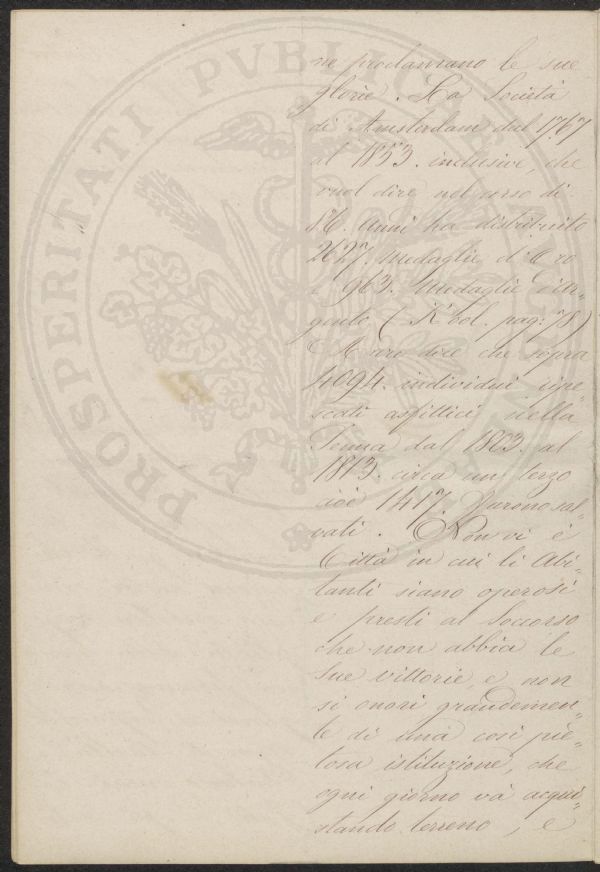 ne proclamano le sue
glorie. La Società
di Amsterdam dal 1767
al 1853. inclusive, che
vuol dire nel corso di
86. Anni ha distribuito
2627. Medaglie d'Oro
e 963. Medaglie d'Ar„
gento ( Kool. pag: 78)
dice che sopra
4094. individui ripe„
scati asfittici nella
Senna dal 1803. al
1813. circa un terzo
cioè 1417. furono sal„
vati. Non vi è
Città in cui li Abi„
tanti siano operosi
e presti al Soccorso
che non abbia le
Sue vittorie, e non
si onori grandemen„
te di una così pie„
tosa istituzione, che
ogni giorno và acqui„
stando terreno, e
PROSPERITATI PVBLICAE